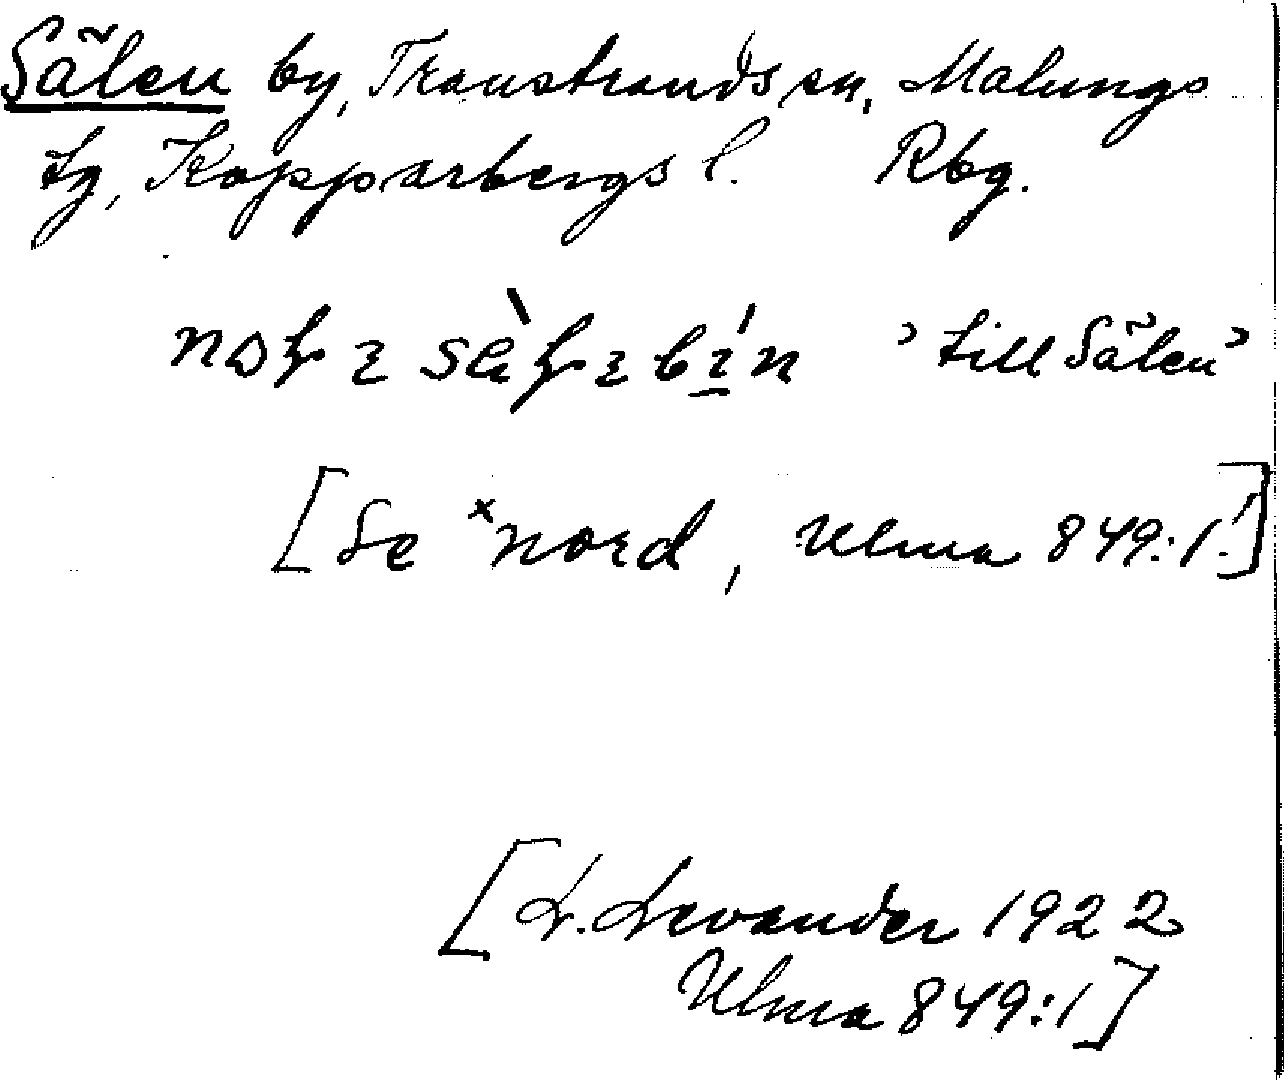 Sälen by, Transtrands sn, Malungs
tg, Kopparbergs l. Rbg.
’till Sälen’
[Se ˣnord, Ulma 849:1!]
[L. Levander 1922
Ulma 849:1]